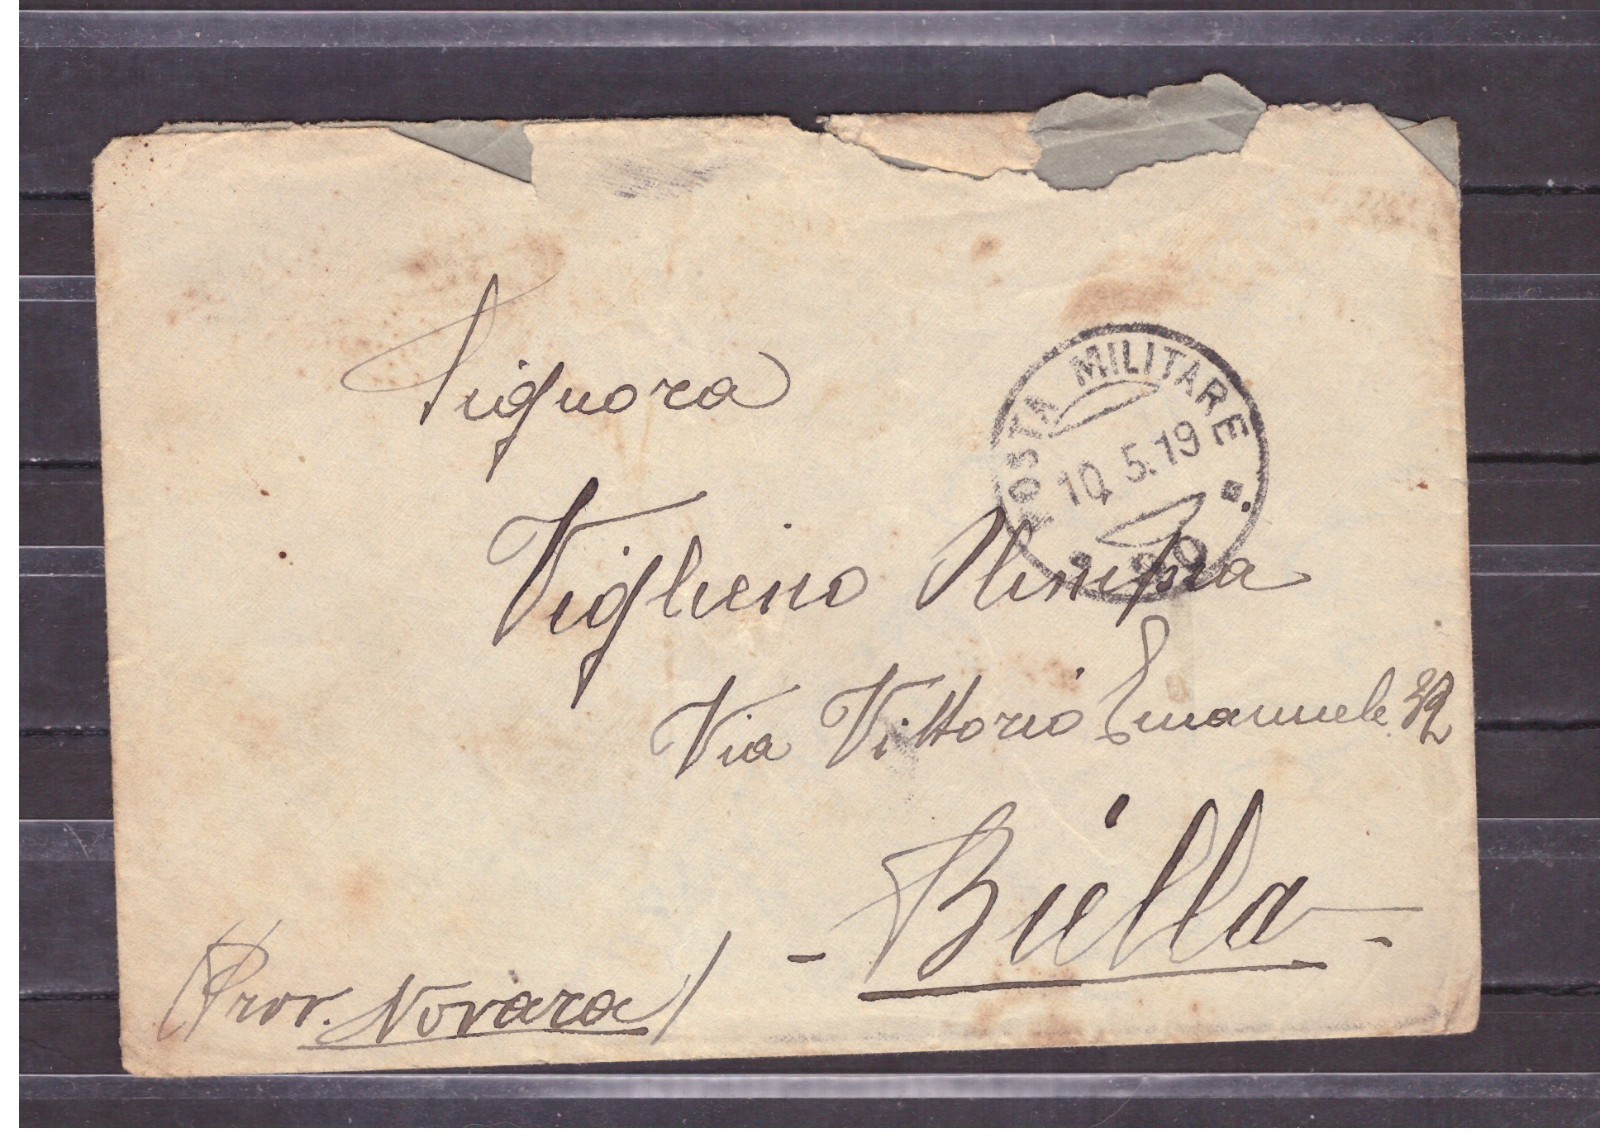 Signora
POSTA MILITARE
10.5.19
Viglieno Olimpia
Via Vittorio Emanuele
- Biella -
(Prov. Novara)